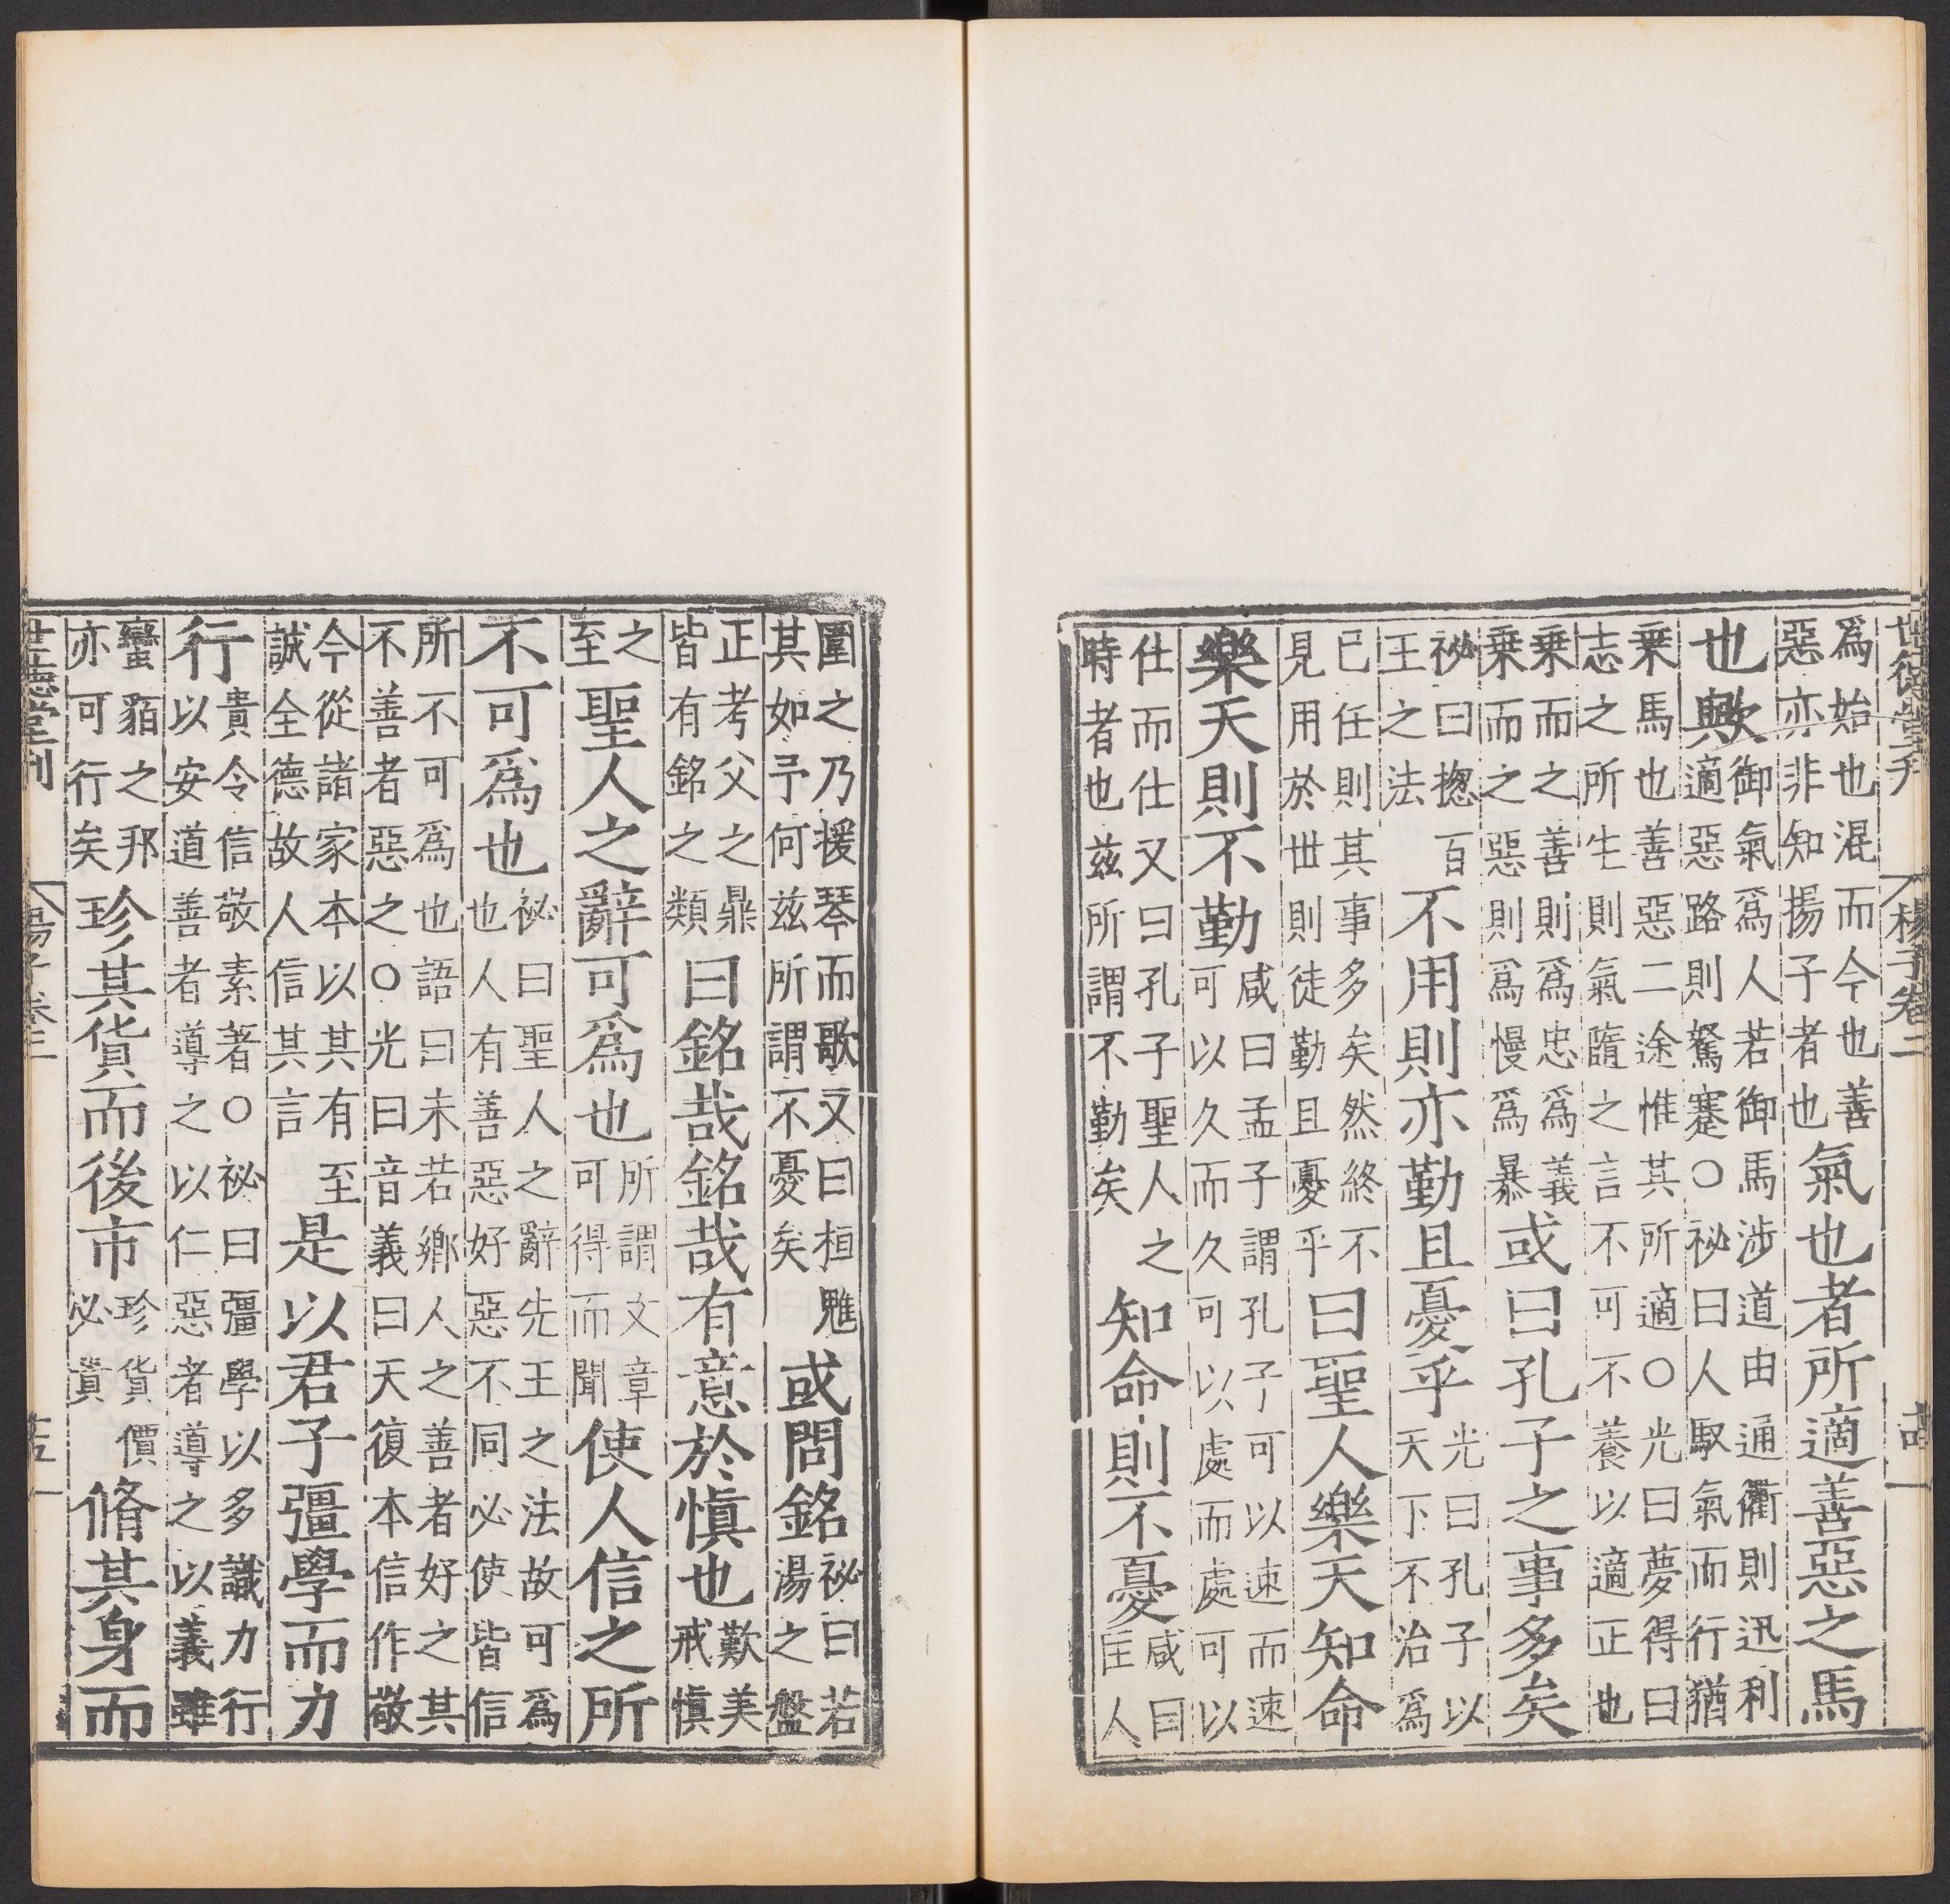 世德堂刊　楊子卷二　十四
爲始也混而今也善惡亦非知揚子者也氣也者所適善惡之馬
也歟御氣爲人若御馬涉道由通衢則迅利適惡路則駑蹇○祕曰人馭氣而行猶
乗馬也善惡二途惟其所適○光曰夢得曰志之所生則氣隨之言不可不養以適正也
乗而之善則爲忠爲義乗而之惡則爲慢爲暴或曰孔子之事多矣
祕曰揔百王之法不用則亦勤且憂乎光曰孔子以天下不治爲
已任則其事多矣然終不見用於世則徒勤且憂乎曰聖人樂天知命
樂天則不勤咸曰孟子謂孔子可以速而速可以久而久可以處而處可以
仕而仕又曰孔子聖人之時者也兹所謂不勤矣知命則不憂咸曰匡人
圍之乃援琴而歌又曰桓魋其如予何兹所謂不憂矣或問銘祕曰若湯之盤
正考父之鼎皆有銘之類曰銘哉銘哉有意於慎也歎美戒慎
之至聖人之辭可爲也所謂文章可得而聞使人信之所
不可爲也祕曰聖人之辭先王之法故可爲也人有善惡好惡不同必使皆信
所不可爲也語曰未若鄉人之善者好之其不善者惡之○光曰音義曰天復本信作敬
今從諸家本以其有至誠全德故人信其言是以君子彊學而力
行貴令信敬素著○祕曰彊學以多識力行以安道善者導之以仁惡者導之以義雖
蠻貊之邦亦可行矣珍其貨而後市珍貨價必貴脩其身而
世德堂刊